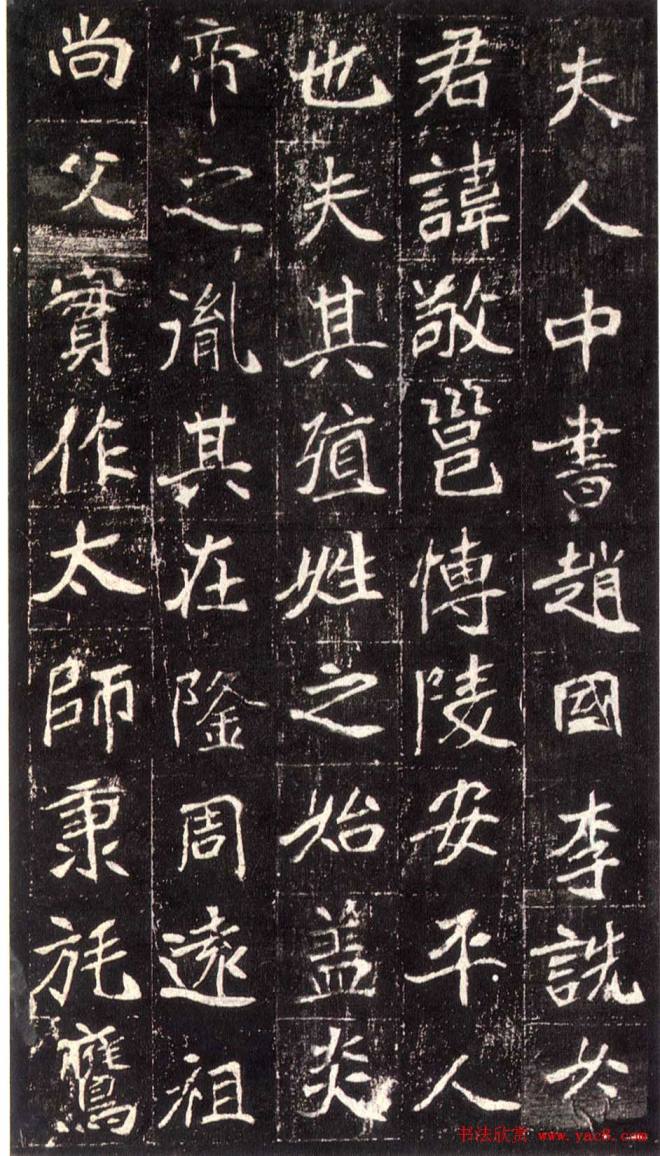 夫人中書趙國李詵女
君諱敬邕愽陵安平人
也夫其殖姓之始盖炎
帝之胤其在隆周遠祖
尚父實作太師秉旄鷹
书法欣赏 www.yac8.com